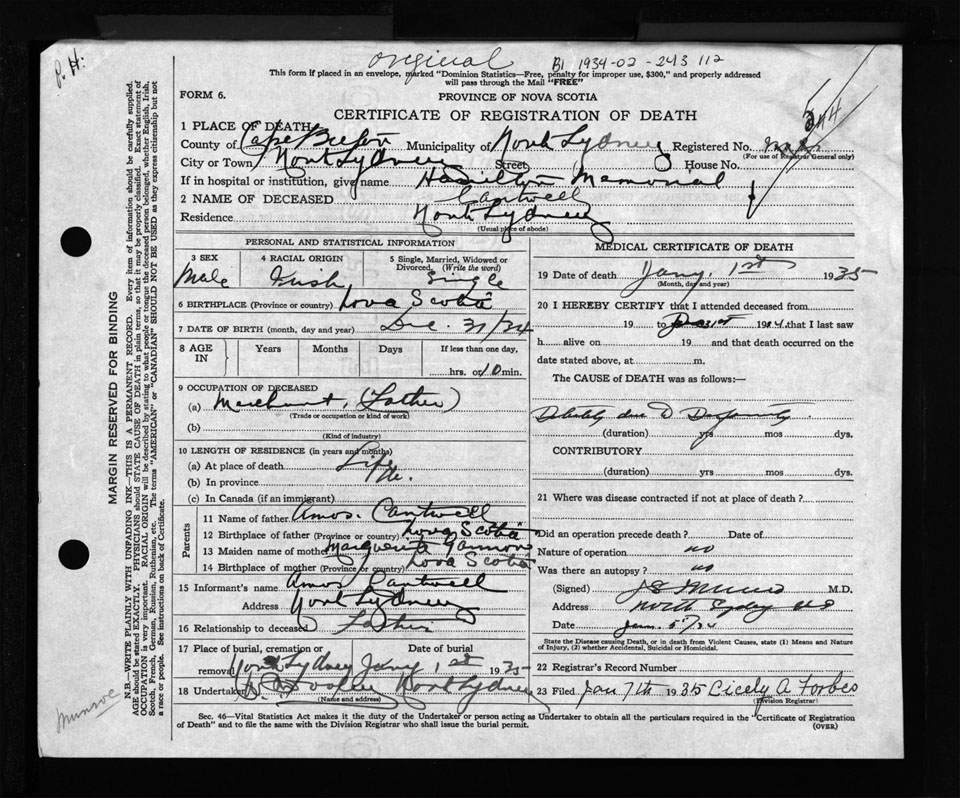 P. H.
original
B1 1934-02-243 112
This form if placed in an envelope, marked "Dominion Statistics—Free, penalty for improper use, $300," and properly addressed
will pass through the Mail "FREE"
FORM 6.
PROVINCE OF NOVA SCOTIA
CERTIFICATE OF REGISTRATION OF DEATH
344
1 PLACE OF DEATH
County of Cape Breton Municipality of North Sydney Registered No.
(For use of Registrar General only)
City or Town North Sydney Street House No.
If in hospital or institution, give name Hamilton Memorial
2 NAME OF DECEASED Cantwell
Residence North Sydney
(Usual place of abode)
PERSONAL AND STATISTICAL INFORMATION
3 SEX 4 RACIAL ORIGIN 5 Single, Married, Widowed or Divorced. (Write the word)
Male Irish Single
6 BIRTHPLACE (Province or country) Nova Scotia
7 DATE OF BIRTH (month, day and year) Dec. 31/34
8 AGE IN Years Months Days If less than one day,
hrs. or 10 min.
9 OCCUPATION OF DECEASED
(a) Merchant, (Father)
(Trade or occupation or kind of work)
(b)
(Kind of industry)
10 LENGTH OF RESIDENCE (in years and months)
(a) At place of death Life
(b) In province
(c) In Canada (if an immigrant)
Parents
11 Name of father Amos. Cantwell
12 Birthplace of father (Province or country) Nova Scotia
13 Maiden name of mother Marguerita
14 Birthplace of mother (Province or country) Nova Scotia
15 Informant's name Amos Cantwell
Address North Sydney
16 Relationship to deceased Father
17 Place of burial, cremation or removal Date of burial
North Sydney Jany 1st 1935
18 Undertaker North Sydney
(Name and address)
MEDICAL CERTIFICATE OF DEATH
19 Date of death Jany. 1st 1935
(Month, day and year)
20 I HEREBY CERTIFY that I attended deceased from
19 to 19 that I last saw
h alive on 19 and that death occurred on the
date stated above, at m.
The CAUSE of DEATH was as follows:—
Debility due to
(duration) yrs mos dys.
CONTRIBUTORY
(duration) yrs mos dys.
21 Where was disease contracted if not at place of death?
Did an operation precede death? Date of
Nature of operation no
Was there an autopsy? no
(Signed) Munro M.D.
Address North Sydney NS
Date Jan.
State the Disease causing Death, or in death from Violent Causes, state (1) Means and Nature
of Injury, (2) whether Accidental, Suicidal or Homicidal.
22 Registrar's Record Number
23 Filed Jan 7th 1935 Cicely A Forbes
(Division Registrar)
Sec. 46—Vital Statistics Act makes it the duty of the Undertaker or person acting as Undertaker to obtain all the particulars required in the "Certificate of Registration
of Death" and to file the same with the Division Registrar who shall issue the burial permit.
(OVER)
MARGIN RESERVED FOR BINDING
N.B.—WRITE PLAINLY WITH UNFADING INK—THIS IS A PERMANENT RECORD. Every item of information should be carefully supplied.
AGE should be stated EXACTLY. PHYSICIANS should STATE CAUSE OF DEATH in plain terms, so that it may be properly classified. Exact statement of
OCCUPATION is very important. RACIAL ORIGIN will be described by stating to what people or tongue the deceased person belonged, whether English, Irish,
Scotch, French, German, Russian, Ruthenian, etc. The terms "AMERICAN" or "CANADIAN" SHOULD NOT BE USED as they express citizenship but not
a race or people. See instructions on back of Certificate.
Munroe